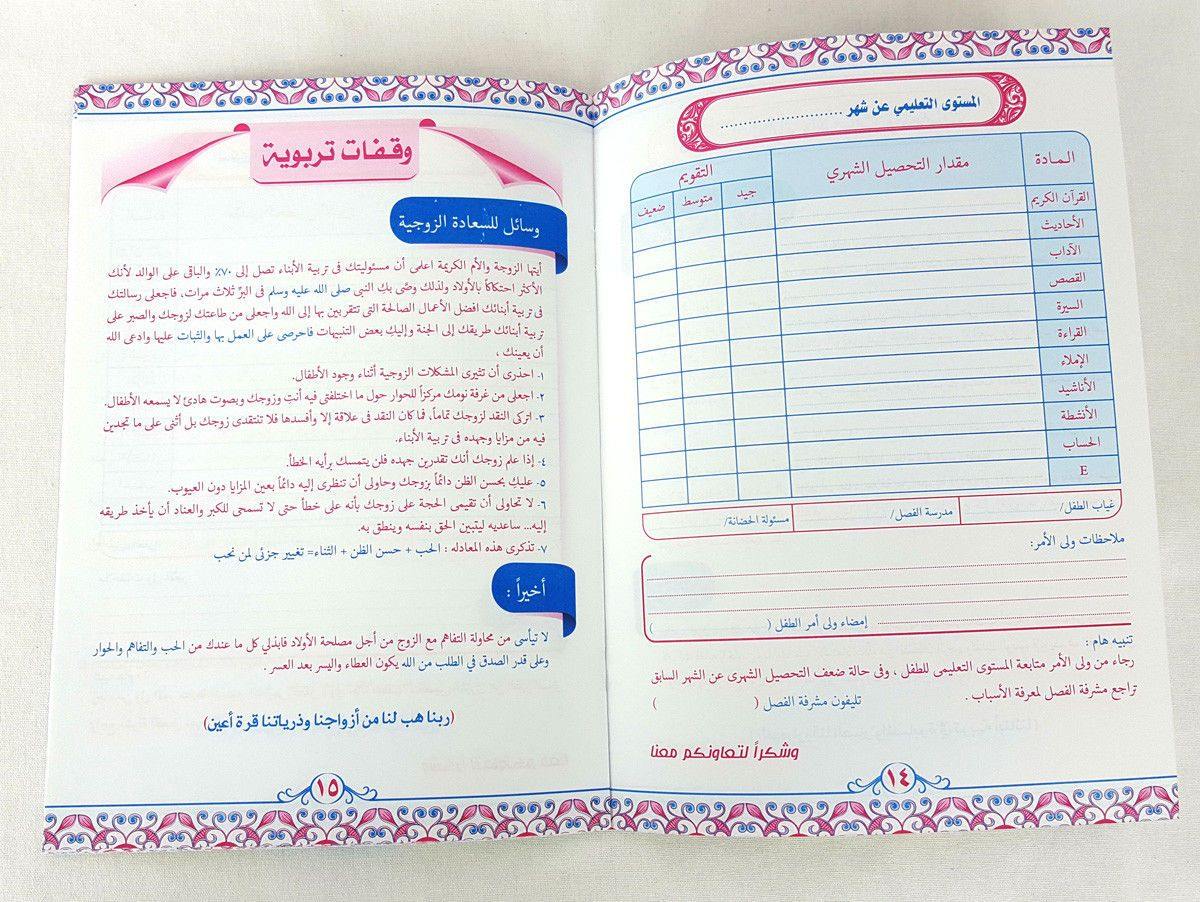 المستوى التعليمي عن شهر ..........................
المادة
مقدار التحصيل الشهري
التقويم
جيد
متوسط
ضعيف
القرآن الكريم
الأحاديث
الآداب
القصص
السيرة
القراءة
الإملاء
الأناشيد
الأنشطة
الحساب
E
غياب الطفل/
مدرسة الفصل/
مسئولة الحضانة/
ملاحظات ولى الأمر:
إمضاء ولى أمر الطفل ( )
تنبيه هام :
رجاء من ولى الأمر متابعة المستوى التعليمى للطفل ، وفى حالة ضعف التحصيل الشهرى عن الشهر السابق
تراجع مشرفة الفصل لمعرفة الأسباب . تليفون مشرفة الفصل ( )
وشكراً لتعاونكم معنا
١٤
وقفات تربوية
وسائل للسعادة الزوجية
أيتها الزوجة والأم الكريمة اعلمى أن مسئوليتك فى تربية الأبناء تصل إلى ٧٠٪ والباقى على الوالد لأنك
الأكثر احتكاكاً بالأولاد ولذلك وصَّى بك النبى صلى الله عليه وسلم فى البرَّ ثلاث مرات، فاجعلى رسالتك
فى تربية أبنائك افضل الأعمال الصالحة التى تتقربين بها إلى الله واجعلى من طاعتك لزوجك والصبر على
تربية أبنائك طريقك إلى الجنة وإليك بعض التنبيهات فاحرصى على العمل بها والثبات عليها وادعى الله
أن يعينك ،
١- احذرى أن تثيرى المشكلات الزوجية أثناء وجود الأطفال.
٢- اجعلى من غرفة نومك مركزاً للحوار حول ما اختلفتى فيه أنتِ وزوجك وبصوت هادئ لا يسمعه الأطفال.
٣- اتركى النقد لزوجك تماماً، فما كان النقد فى علاقة إلا وأفسدها فلا تنتقدى زوجك بل أثنى على ما تجدين
فيه من مزايا وجهده فى تربية الأبناء.
٤- إذا علم زوجك أنك تقدرين جهده فلن يتمسك برأيه الخطأ.
٥- عليكِ بحسن الظن دائماً بزوجك وحاولى أن تنظرى إليه دائماً بعين المزايا دون العيوب.
٦- لا تحاولى أن تقيمى الحجة على زوجك بأنه على خطأ حتى لا تسمحى للكبر والعناد أن يأخذ طريقه
إليه... ساعديه ليتبين الحق بنفسه وينطق به.
٧- تذكرى هذه المعادله : الحب + حسن الظن + الثناء= تغيير جزئى لمن نحب
أخيراً :
لا تيأسى من محاولة التفاهم مع الزوج من أجل مصلحة الأولاد فابذلي كل ما عندك من الحب والتفاهم والحوار
وعلى قدر الصدق في الطلب من الله يكون العطاء واليسر بعد العسر .
(ربنا هب لنا من أزواجنا وذرياتنا قرة أعين)
١٥